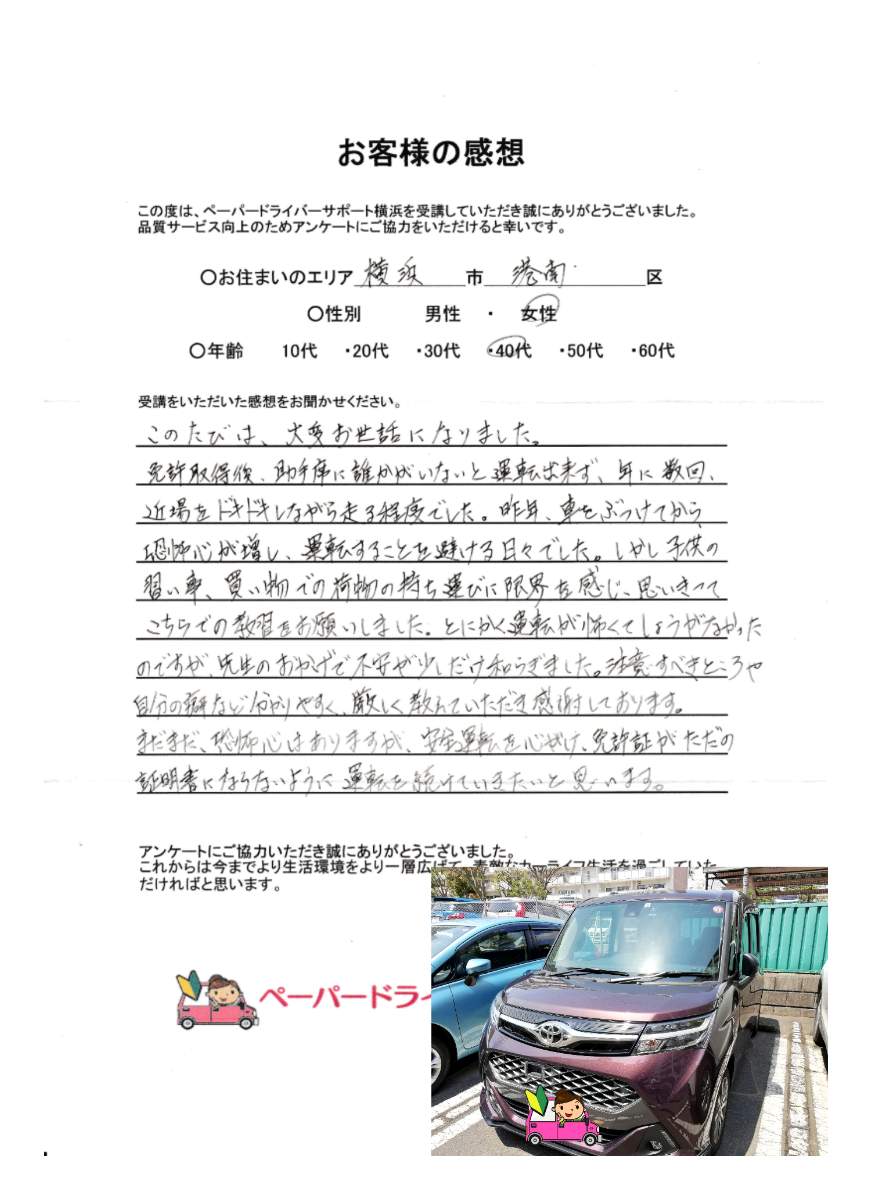 お客様の感想
この度は、ペーパードライバーサポート横浜を受講していただき誠にありがとうございました。
品質サービス向上のためアンケートにご協力をいただけると幸いです。
〇お住まいのエリア 横浜 市 港南 区
〇性別 男性 ・ 女性
〇年齢 10代 ・20代 ・30代 ・40代 ・50代 ・60代
受講をいただいた感想をお聞かせください。
このたびは、大変お世話になりました。
免許取得後、助手席に誰かがいないと運転出来ず、年に数回、
近場をドキドキしながら走る程度でした。昨年、車をぶつけてから
恐怖心が増し、運転することを避ける日々でした。しかし子供の
習い事、買い物での荷物の持ち運びに限界を感じ、思いきって
こちらでの教習をお願いしました。とにかく運転が怖くてしょうがなかった
のですが、先生のおかげで不安が少しだけ和らぎました。注意すべきところや
自分の癖など分かりやすく、厳しく教えていただき感謝しております。
まだまだ、恐怖心はありますが、安全運転を心がけ、免許証がただの
証明書にならないように運転を続けていきたいと思います。
アンケートにご協力いただき誠にありがとうございました。
これからは今までより生活環境をより一層広げて、素敵なカーライフ生活を過ごしていた
だければと思います。
ペーパードライ